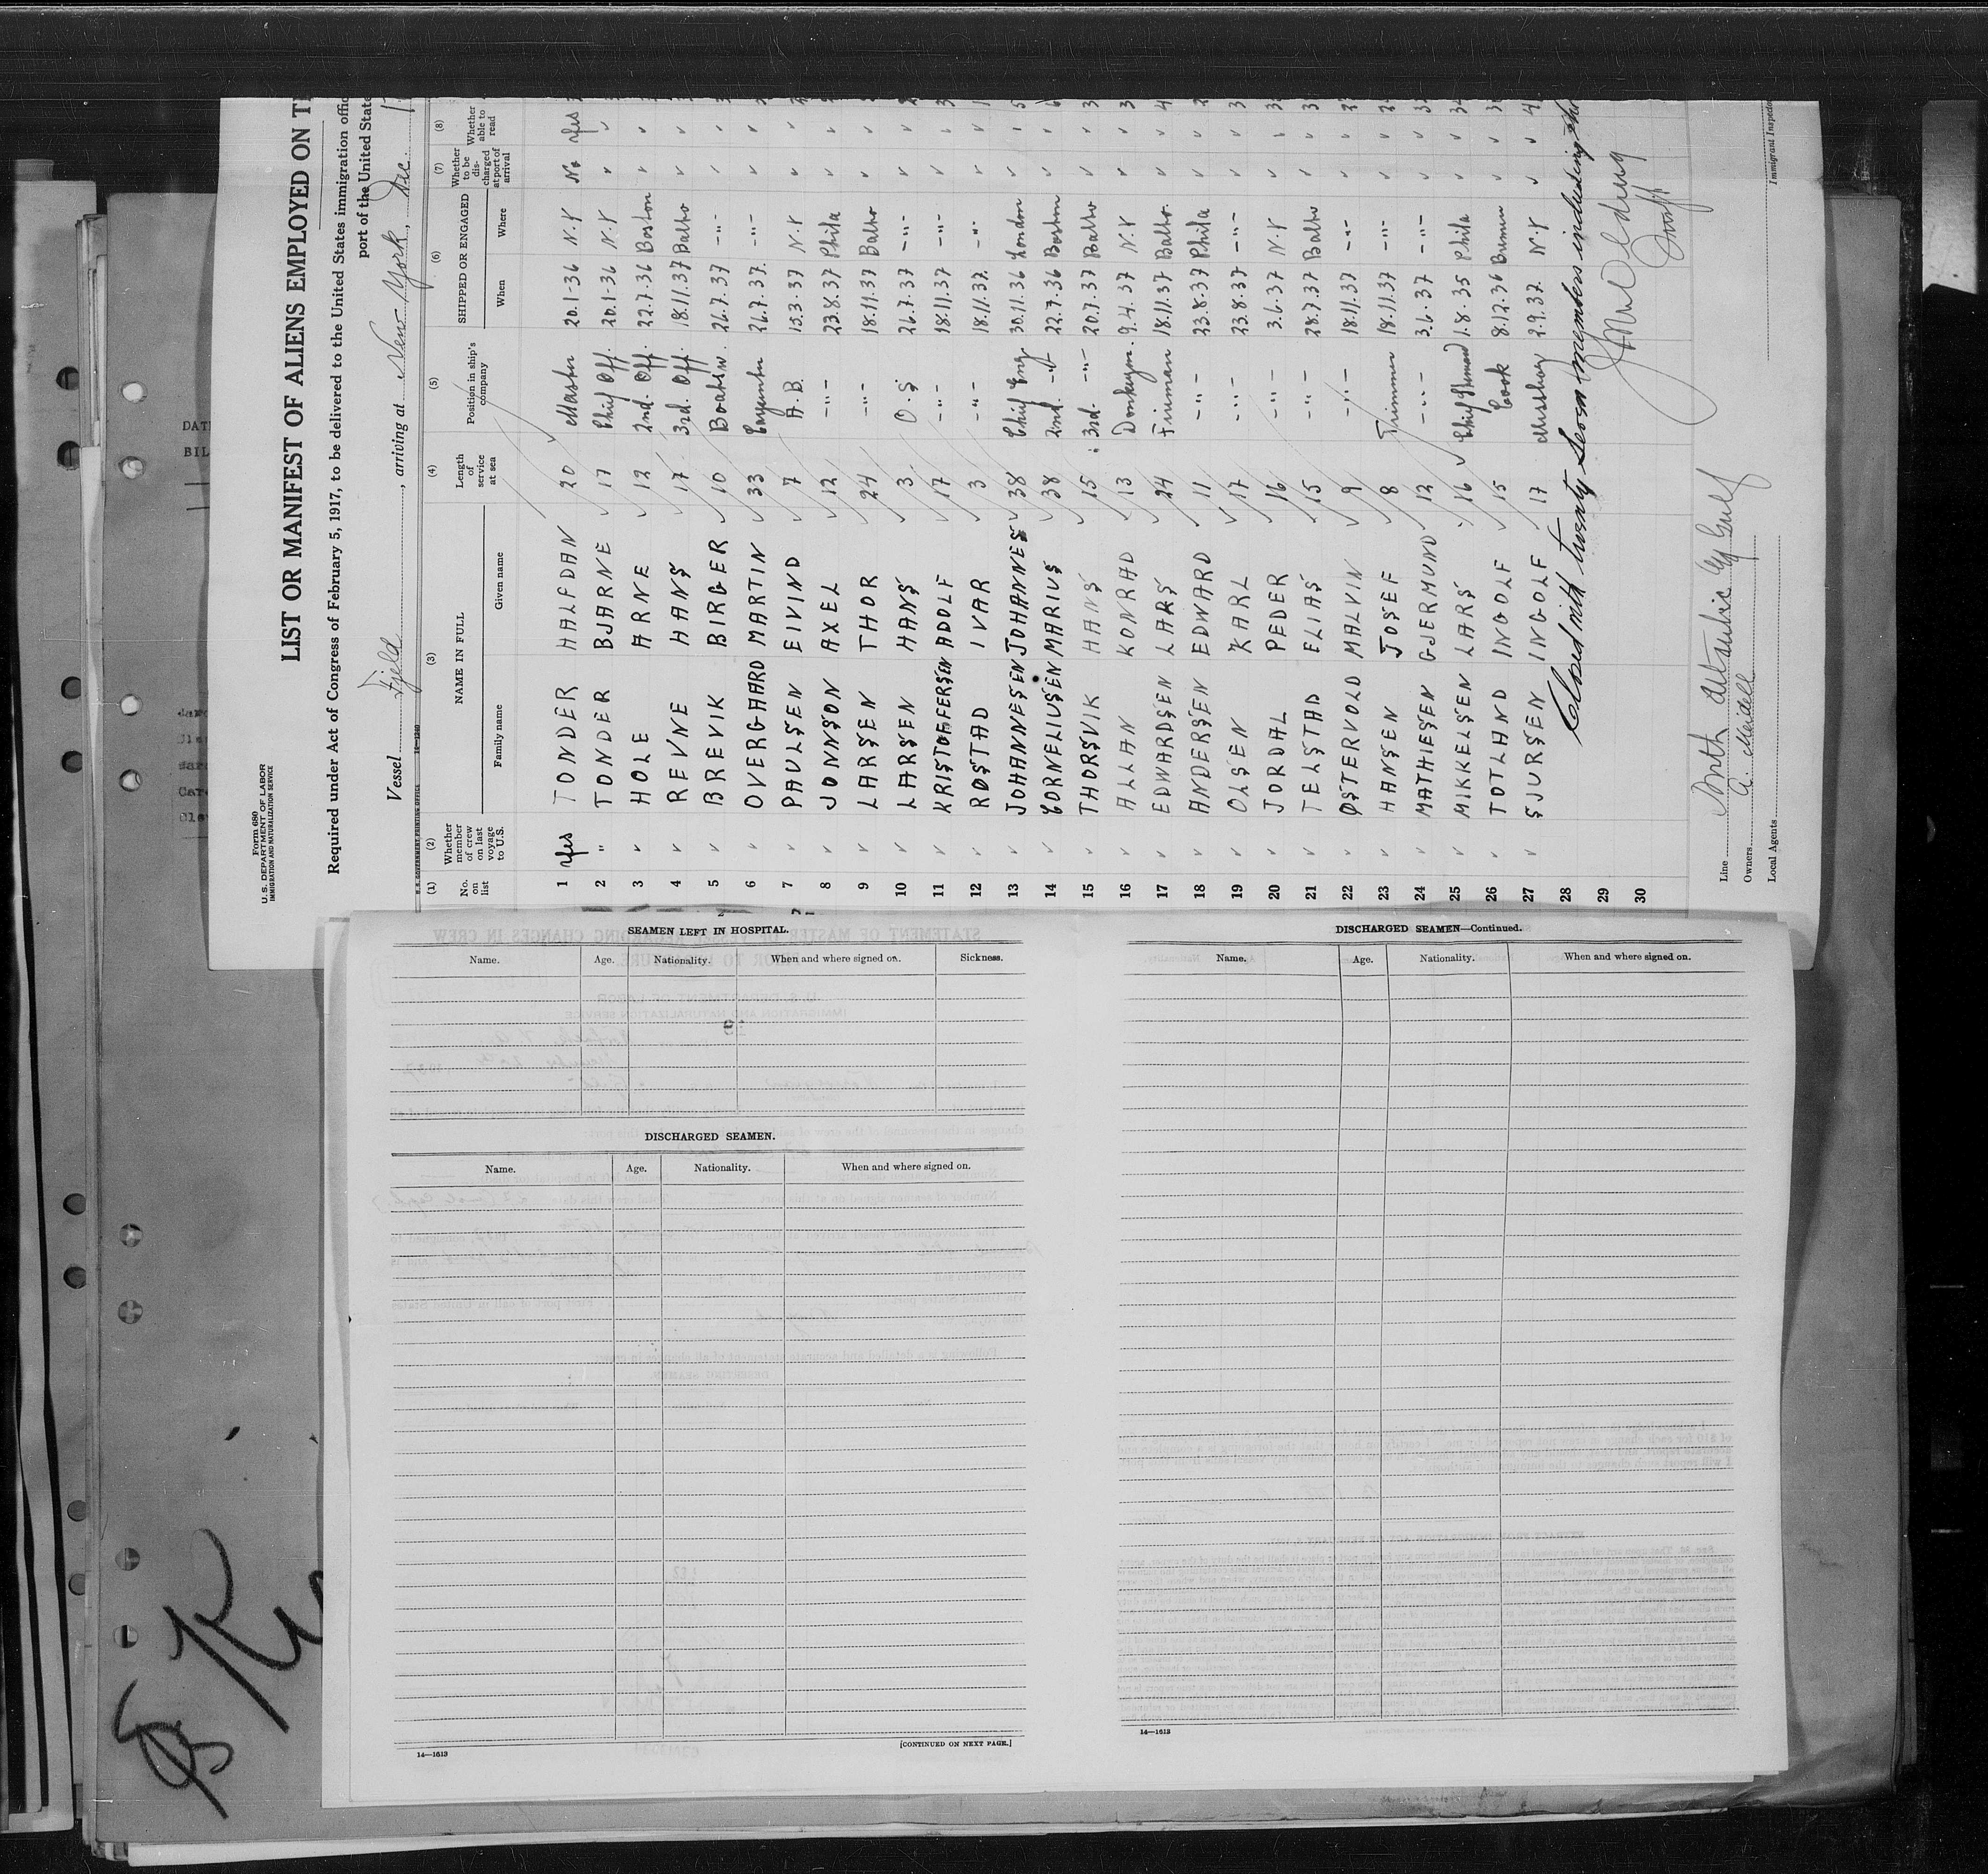 Form 680
U. S. DEPARTMENT OF LABOR
IMMIGRATION AND NATURALIZATION SERVICE
LIST OR MANIFEST OF ALIENS EMPLOYED ON T
Required under Act of Congress of February 5, 1917, to be delivered to the United States immigration offic
port of the United State
Vessel Fjeld, arriving at New-York, Dec. 1
(1) (2) (3) (4) (5) (6) (7) (8)
No. on list Whether member of crew on last voyage to U.S. NAME IN FULL Length of service at sea Position in ship's company SHIPPED OR ENGAGED Whether to be discharged at port of arrival Whether able to read
Family name Given name When Where
1 Yes TONDER HALFDAN 20 Master 20.1-36 N.Y No Yes
2 " TONDER BJARNE 17 Chif Off. 20.1-36 N.Y
3 HOLE ARNE 12 2nd. Off. 22.7.36 Boston
4 REVNE HANS 17 3rd. Off. 18.11.37 Balto
5 BREVIK BIRGER 10 Boatsw. 26.7.37 -"-
6 OVERGAARD MARTIN 33 26.7.37. -"-
7 PAULSEN EIVIND 7 A.B. 15.3.37 N.Y
8 JONNSON AXEL 12 -"- 23.8.37 Phila
9 LARSEN THOR 24 -"- 18.11.37 Balto
10 LARSEN HANS 3 O.S 26.7.37 -"-
11 KRISTOFFERSEN ADOLF 17 -"- 18.11.37 -"-
12 ROSTAD IVAR 3 -"- 18.11.37. -"-
13 JOHANNESEN JOHANNES 38 Chif Eng 30.11.36 London
14 CORNELIUSEN MARIUS 38 2nd. -"- 22.7.36 Boston
15 THORSVIK HANS 15 3rd. -"- 20.7.37 Balto
16 ALLAN KONRAD 13 Donkeym. 9.4.37 N.Y
17 EDWARDSEN LARS 24 Fireman 18.11.37 Balto.
18 ANDERSEN EDWARD 11 -"- 23.8.37 Phila
19 OLSEN KARL 17 -"- 23.8.37 -"-
20 JORDAL PEDER 16 -"- 3.6.37 N.Y
21 TELSTAD ELIAS 15 -"- 28.7.37 Balto
22 ØSTERVOLD MALVIN 9 -"- 18.11.37 -"-
23 HANSEN JOSEF 8 Trimmer 18.11.37 -"-
24 MATHIESEN GJERMUND 12 -"- 3.6.37 -"-
25 MIKKELSEN LARS 16 Chif Steward 1.8.35 Phila
26 TOTLAND INGOLF 15 Cook 8.12.36 Bremen
27 SJURSEN INGOLF 17 Messboy 2.9.37. N.Y
28 Closed with twenty seven members including
29
30
Line North Atlantic & Gulf
Owners A. Meidell
Local Agents
Immigrant Inspecto
SEAMEN LEFT IN HOSPITAL.
Name. Age. Nationality. When and where signed on. Sickness.
DISCHARGED SEAMEN.
Name. Age. Nationality. When and where signed on.
14—1613
[CONTINUED ON NEXT PAGE.]
DISCHARGED SEAMEN—Continued.
Name. Age. Nationality. When and where signed on.
14—1613